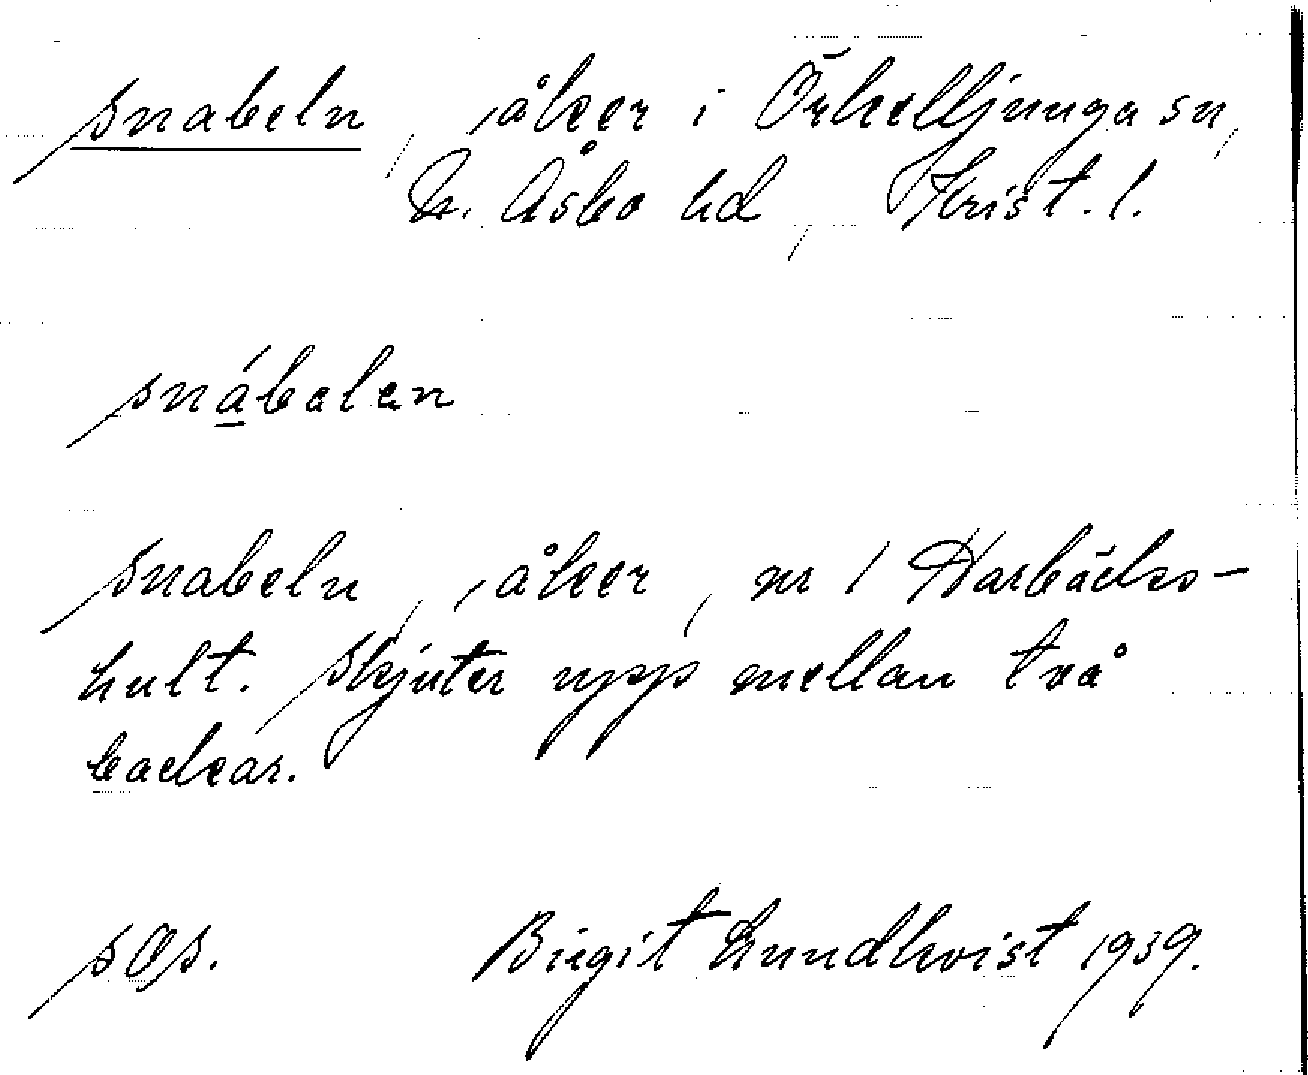 snabeln, åker i Örkelljunga sn,
N. Åsbo hd, Krist. l.
snábalen
snabeln, åker, nr 1 Harbäcks-
hult. Skjuter upp mellan två
backar.
Birgit Lundkvist 1939.